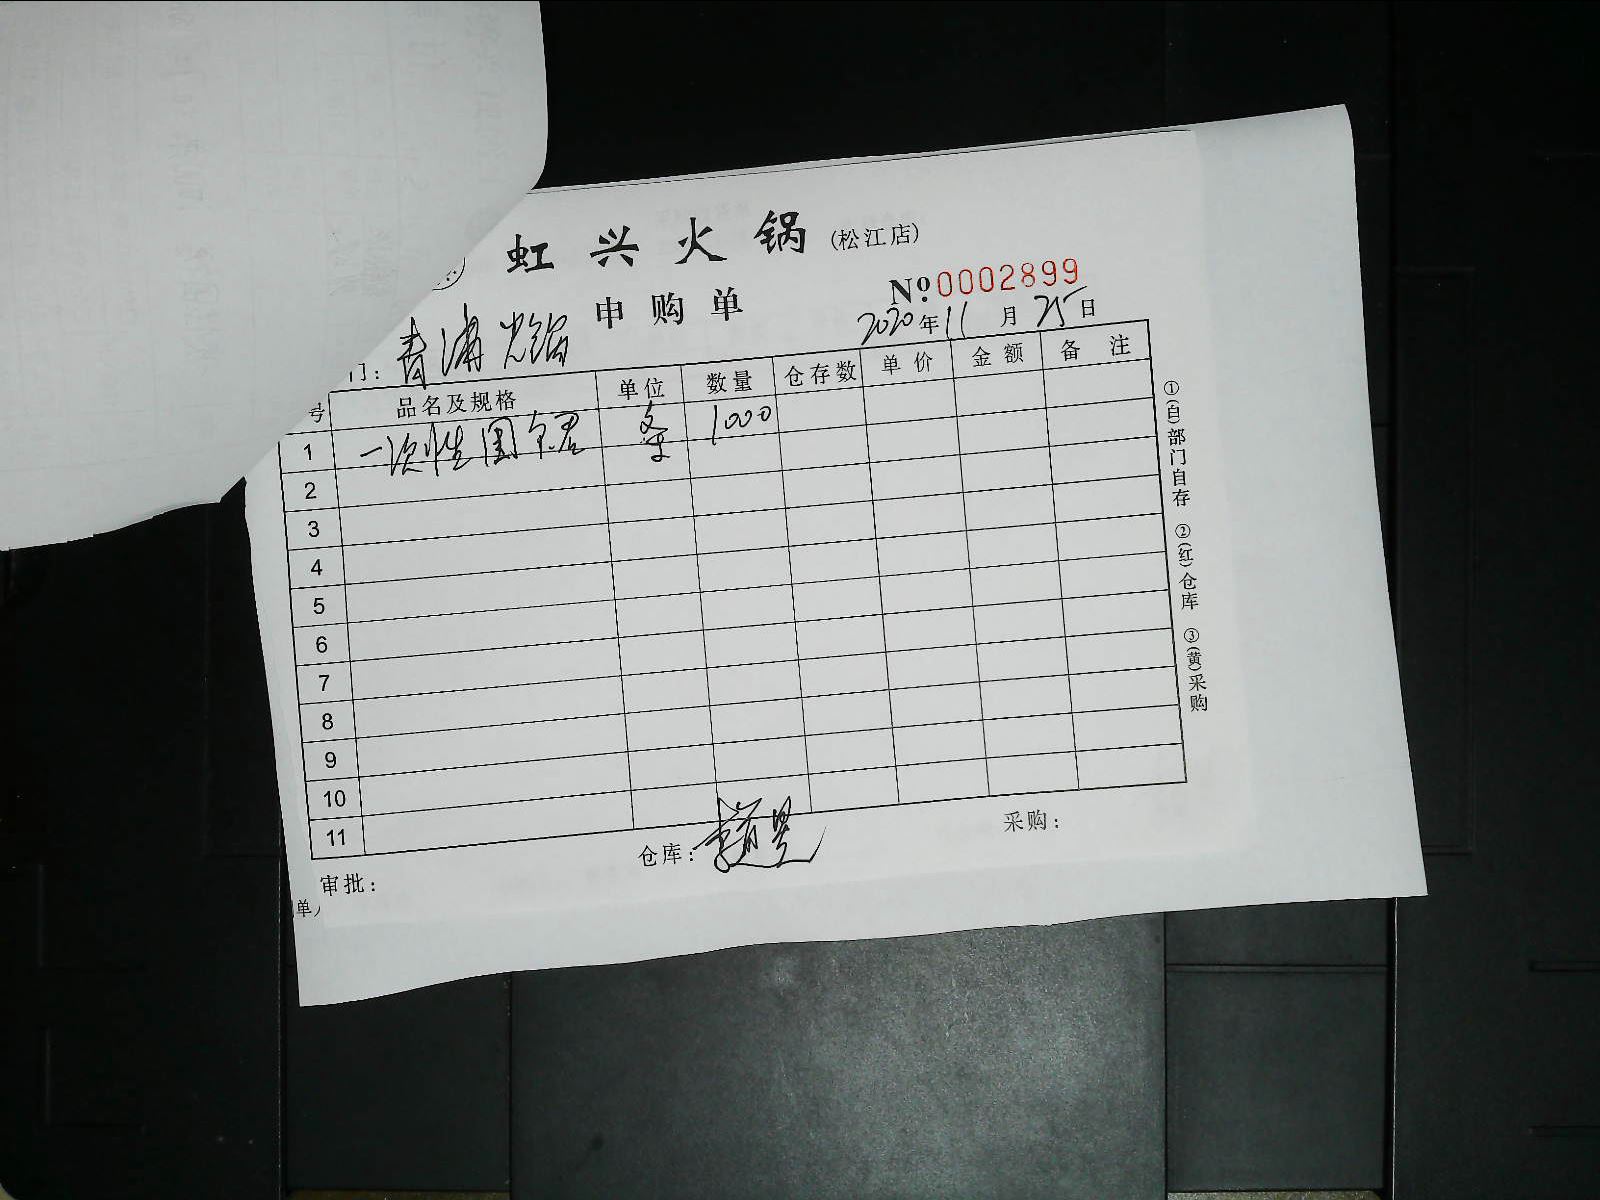 虹兴火锅(松江店)
申购单
№0002899
2020年11月25日
门：青浦
号 品名及规格 单位 数量 仓存数 单价 金额 备注
1 一次性围 条 1000
2
3
4
5
6
7
8
9
10
11
①(白)部门自存 ②(红)仓库 ③(黄)采购
审批： 仓库： 采购：
单